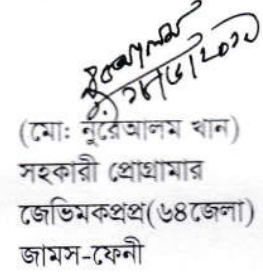 (মো: নুরেআলম খান)
সহকারী প্রোগ্রামার
জেভিমকপ্রপ্র(৬৪জেলা)
জামস-ফেনী